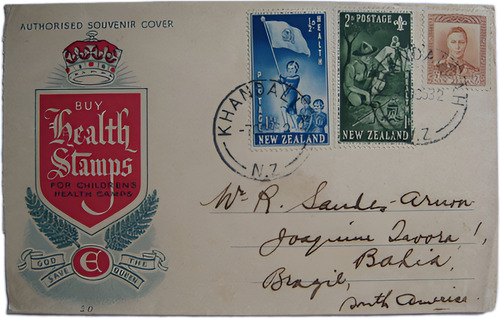 AUTHORISED SOUVENIR COVER
BUY
Health
Stamps
FOR CHILDREN'S
HEALTH CAMPS
GOD SAVE THE QUEEN
E
1½D HEALTH
POSTAGE 1D
NEW ZEALAND
2D POSTAGE
HEALTH 1D
NEW ZEALAND
KHANDALLAH
N.Z
KHANDALLAH
1953-2
N.Z
Mr R. Sandes-Arnon
Joaquim Tavora 1,
Bahia,
Brazil,
South America.